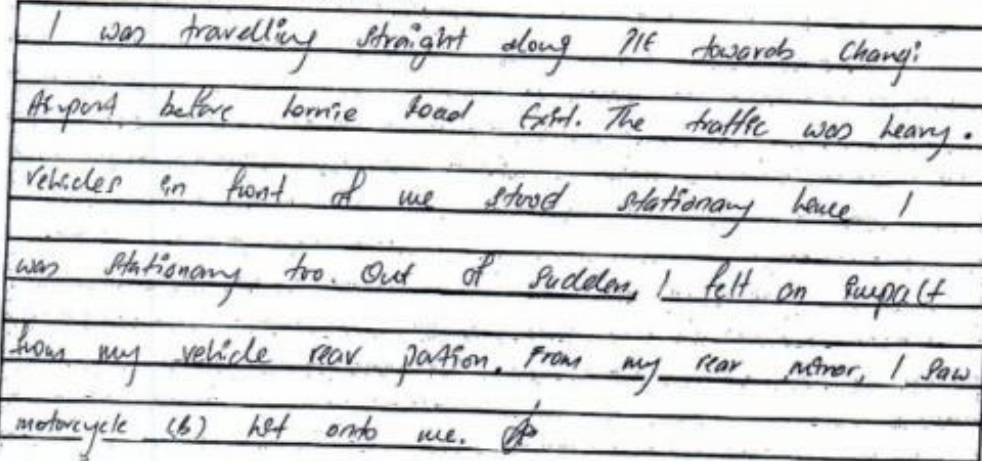 I was travelling straight along PIE towards Changi
Airport before Lornie Road Exit. The traffic was heavy.
Vehicles in front of me stood stationary hence I
was stationary too. Out of sudden, I felt an impact
from my vehicle rear portion. From my rear mirror, I saw
motorcycle (B) hit onto me.